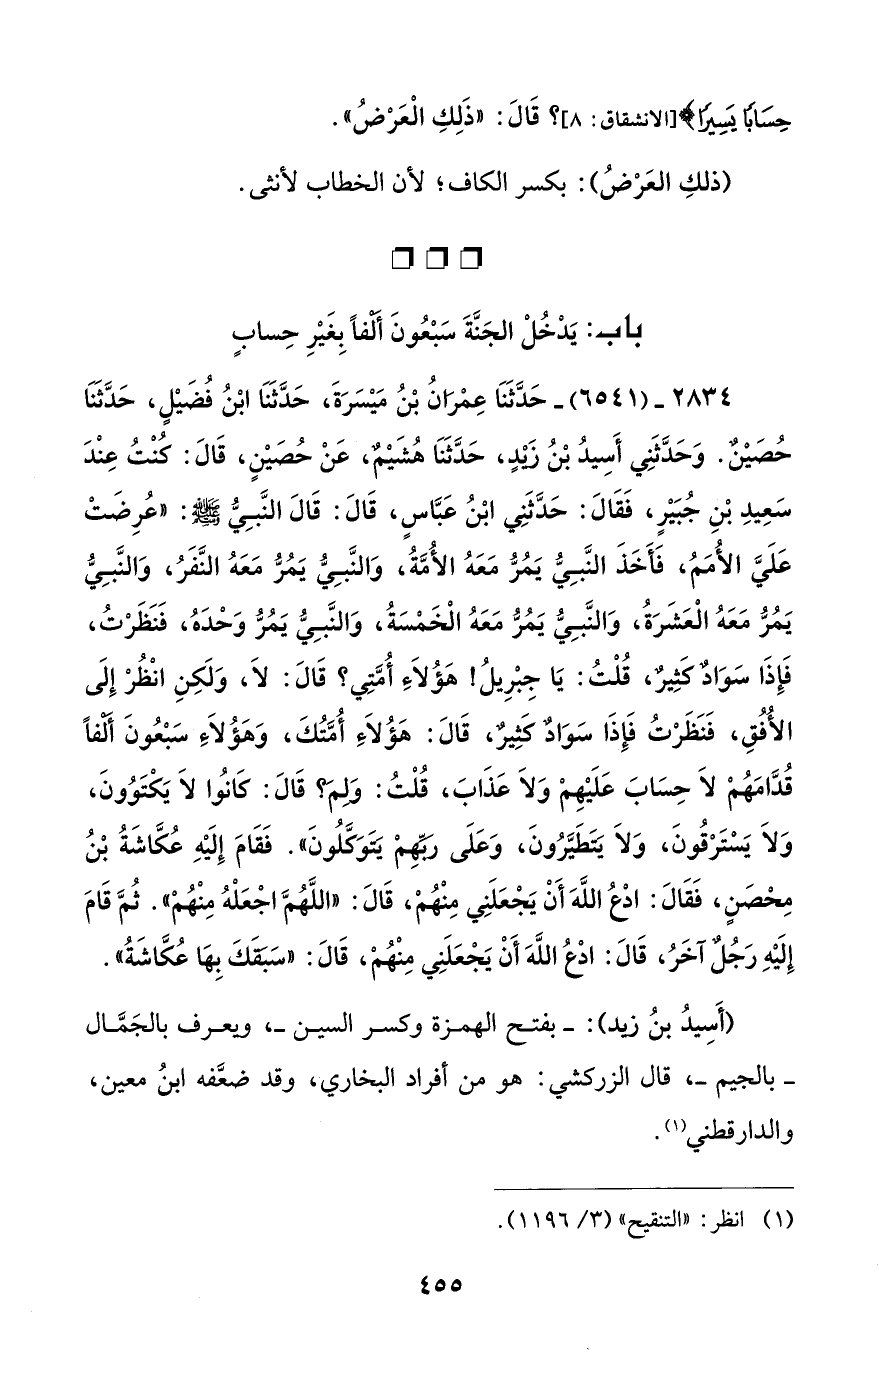 حِسَابًا يَسِيرًا﴾[الانشقاق: ٨]؟ قَالَ: «ذَلِكِ الْعَرْضُ».
(ذلكِ العَرْضُ): بكسر الكاف؛ لأن الخطاب لأنثى.
باب: يَدْخُلُ الجَنَّةَ سَبْعُونَ أَلْفاً بِغَيْرِ حِسابٍ
٢٨٣٤ ـ (٦٥٤١) ـ حَدَّثَنَا عِمْرَانُ بْنُ مَيْسَرَةَ، حَدَّثَنَا ابْنُ فُضَيْلٍ، حَدَّثَنَا
حُصَيْنٌ. وَحَدَّثَنِي أَسِيدُ بْنُ زَيْدٍ، حَدَّثَنَا هُشَيْمٌ، عَنْ حُصَيْنٍ، قَالَ: كُنْتُ عِنْدَ
سَعِيدِ بْنِ جُبَيْرٍ، فَقَالَ: حَدَّثَنِي ابْنُ عَبَّاسٍ، قَالَ: قَالَ النَّبِيُّ ﷺ: «عُرِضَتْ
عَلَيَّ الأُمَمُ، فَأَخَذَ النَّبِيُّ يَمُرُّ مَعَهُ الأُمَّةُ، وَالنَّبِيُّ يَمُرُّ مَعَهُ النَّفَرُ، وَالنَّبِيُّ
يَمُرُّ مَعَهُ الْعَشَرَةُ، وَالنَّبِيُّ يَمُرُّ مَعَهُ الْخَمْسَةُ، وَالنَّبِيُّ يَمُرُّ وَحْدَهُ، فَنَظَرْتُ،
فَإِذَا سَوَادٌ كَثِيرٌ، قُلْتُ: يَا جِبْرِيلُ! هَؤُلاَءِ أُمَّتِي؟ قَالَ: لاَ، وَلَكِنِ انْظُرْ إِلَى
الأُفُقِ، فَنَظَرْتُ فَإِذَا سَوَادٌ كَثِيرٌ، قَالَ: هَؤُلاَءِ أُمَّتُكَ، وَهَؤُلاَءِ سَبْعُونَ أَلْفاً
قُدَّامَهُمْ لاَ حِسَابَ عَلَيْهِمْ وَلاَ عَذَابَ، قُلْتُ: وَلِمَ؟ قَالَ: كَانُوا لاَ يَكْتَوُونَ،
وَلاَ يَسْتَرْقُونَ، وَلاَ يَتَطَيَّرُونَ، وَعَلَى رَبِّهِمْ يَتَوَكَّلُونَ». فَقَامَ إِلَيْهِ عُكَّاشَةُ بْنُ
مِحْصَنٍ، فَقَالَ: ادْعُ اللَّهَ أَنْ يَجْعَلَنِي مِنْهُمْ، قَالَ: «اللَّهُمَّ اجْعَلْهُ مِنْهُمْ». ثُمَّ قَامَ
إِلَيْهِ رَجُلٌ آخَرُ، قَالَ: ادْعُ اللَّهَ أَنْ يَجْعَلَنِي مِنْهُمْ، قَالَ: «سَبَقَكَ بِهَا عُكَّاشَةُ».
(أَسِيدُ بنُ زيد): ـ بفتح الهمزة وكسر السين ـ، ويعرف بالجَمَّال
ـ بالجيم ـ، قال الزركشي: هو من أفراد البخاري، وقد ضعَّفه ابنُ معين،
والدارقطني(١).
(١) انظر: «التنقيح» (٣/ ١١٩٦).
٤٥٥